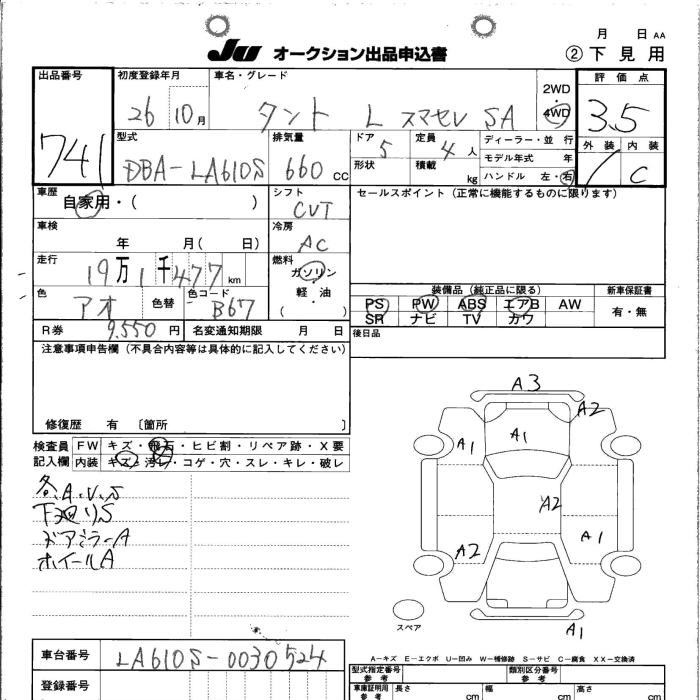 月 日 AA
JU オークション出品申込書 ② 下見用
出品番号 初度登録年月 車名・グレード 評価点
741 26 10月 タント L スマセレ SA 2WD 4WD 3.5
型式 排気量 ドア 5 定員 4人 ディーラー・並行 外装 内装
DBA-LA610S 660 CC 形状 積載 kg モデル年式 年 C
ハンドル 左・右
車歴 シフト セールスポイント(正常に機能するものに限ります)
自家用・( ) CVT
車検 冷房
年 月( 日) AC
走行 燃料
19万1千477km ガソリン
軽・油
( )
色 アオ 色替 色コード B67
装備品(純正品に限る) 新車保証書
PS PW ABS エアB AW 有・無
SR ナビ TV カワ
R券 9.550円 名変通知期限 月 日 後日品
注意事項申告欄(不具合内容等は具体的に記入してください)
修復歴 有 〔箇所 〕
検査員 FW キズ・飛石・ヒビ割・リペア跡・X要
記入欄 内装 キズ・汚レ・コゲ・穴・スレ・キレ・破レ
各A.U.S
下廻りS
ドアミラーA
ホイールA
A3
A2
A1 A1
A2
A2 A1
A1
スペア
A－キズ E－エクボ U－凹み W－補修跡 S－サビ C－腐食 XX－交換済
車台番号 LA610S-0030524
型式指定番号 参考 類別区分番号 参考
登録番号 車庫証明用 参考 長さ cm 幅 cm 高さ cm